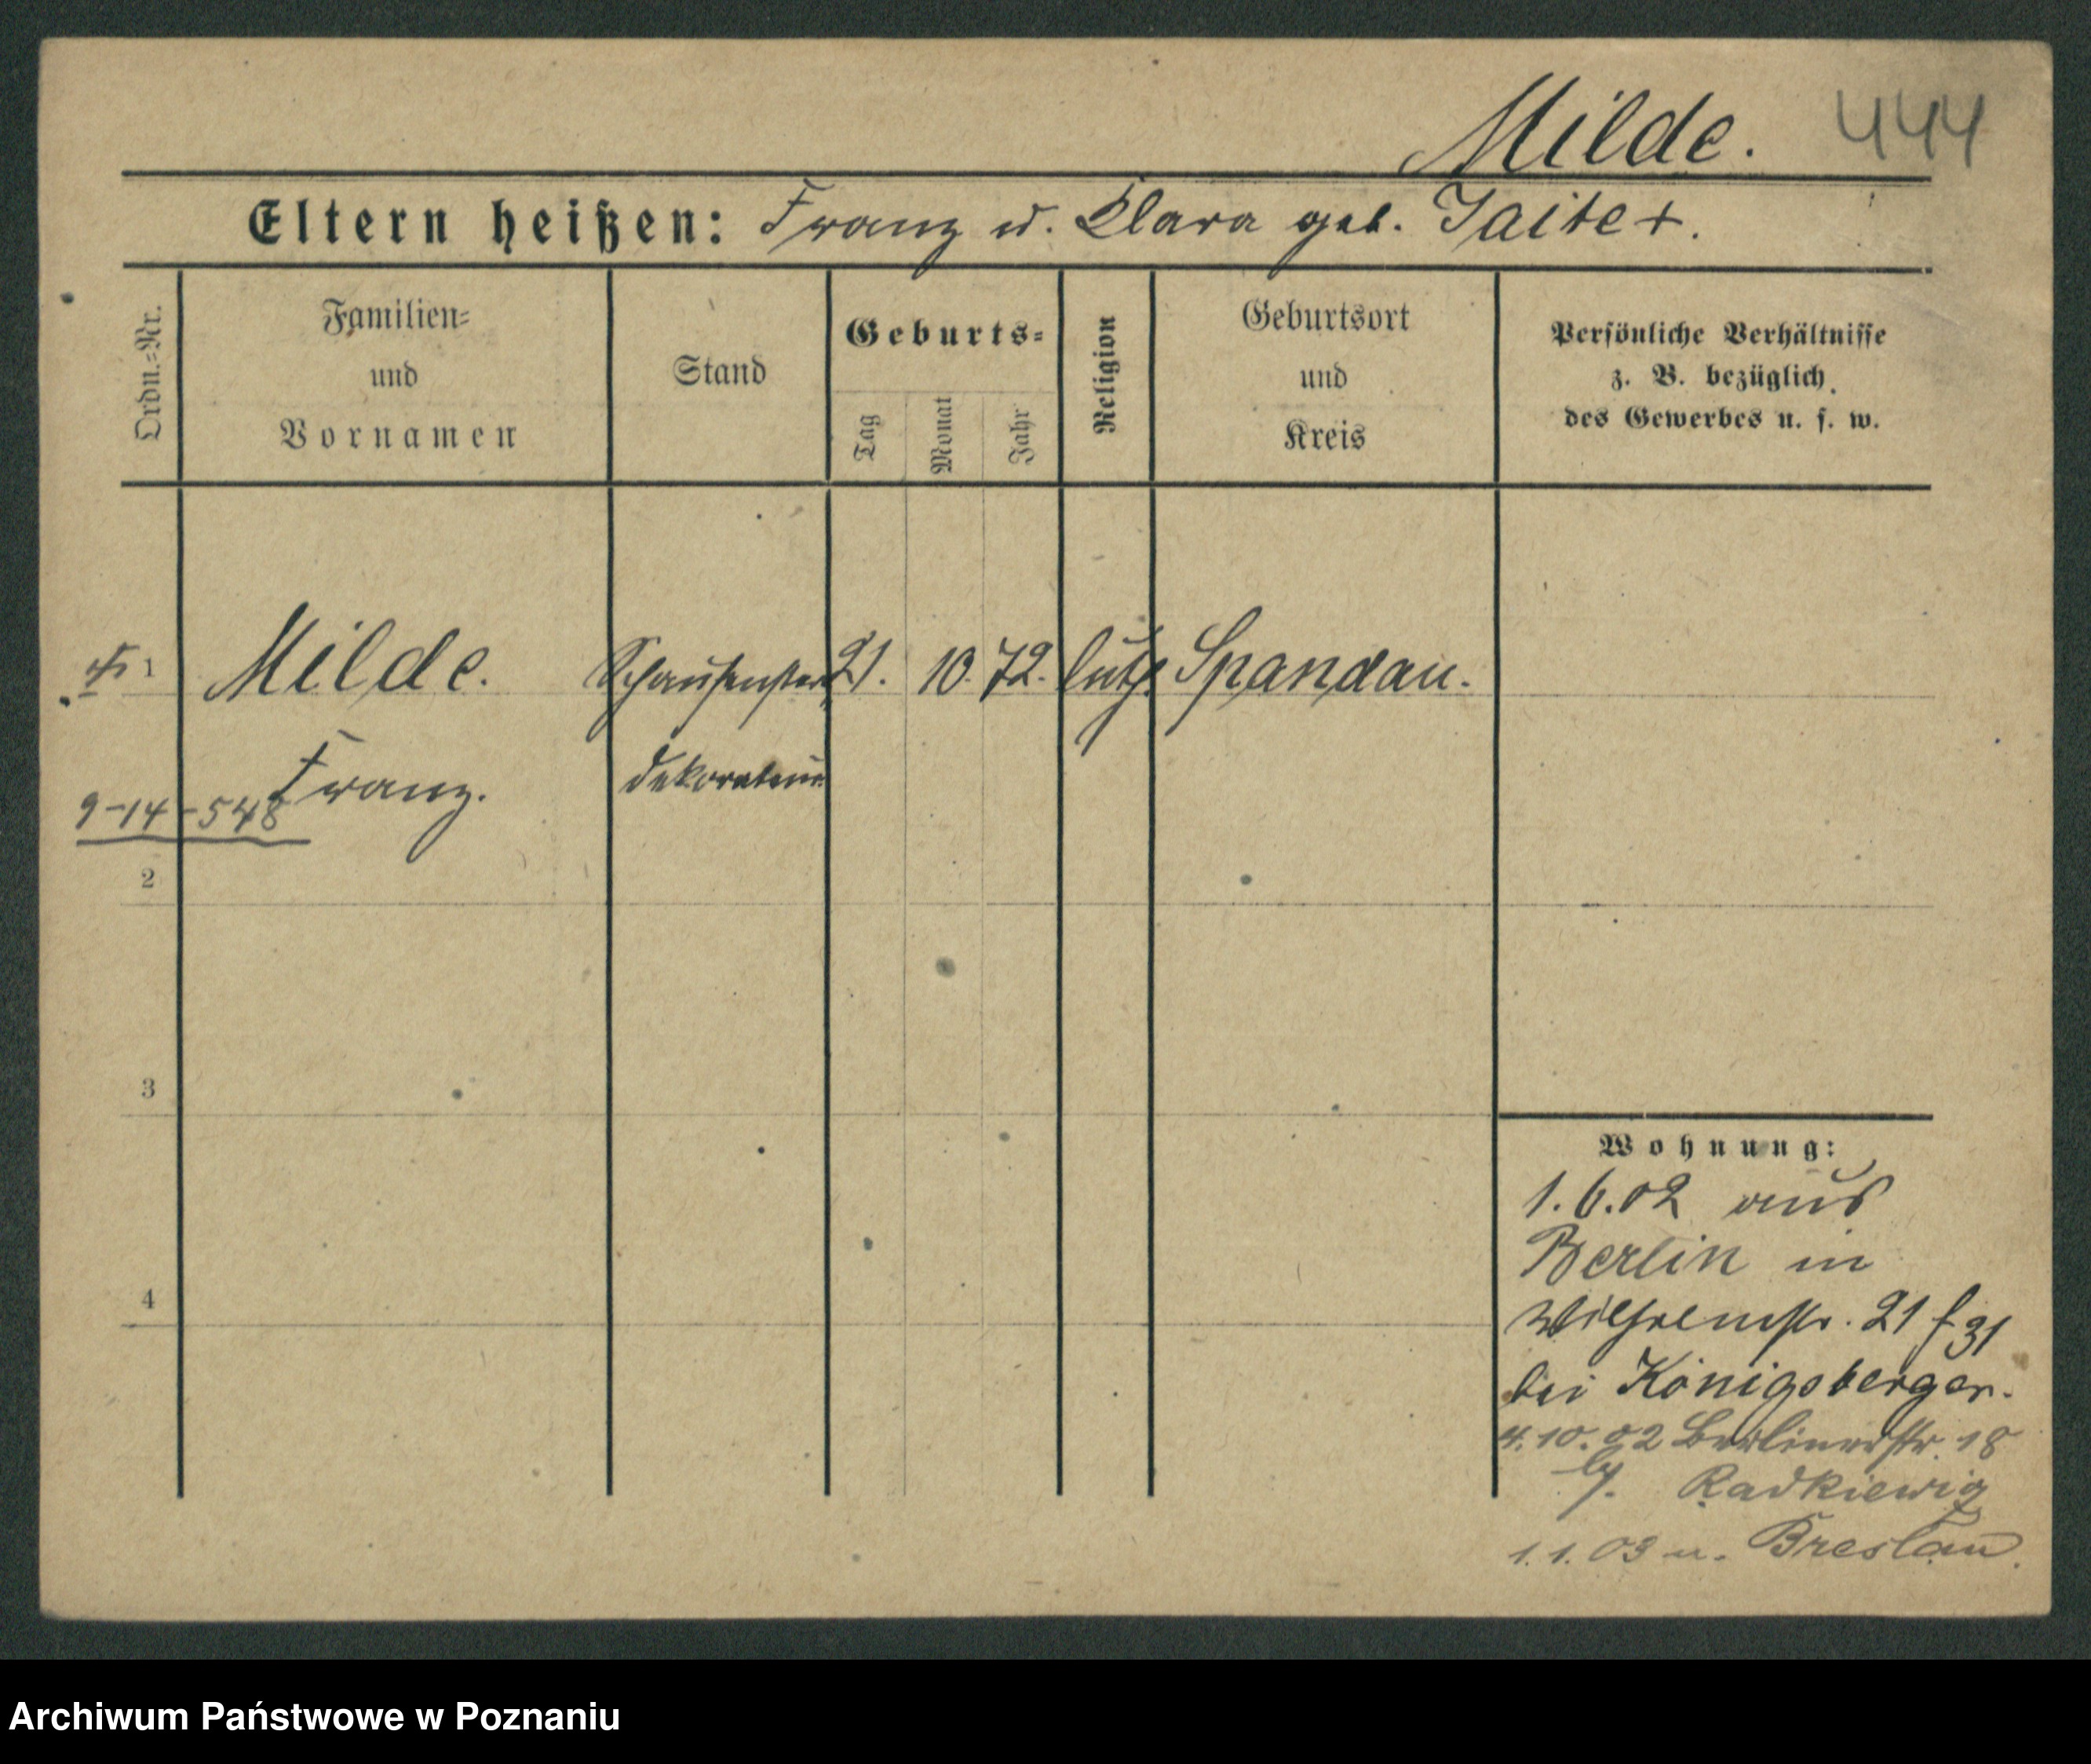 Milde. 444
Eltern heißen: Franz u. Klara geb. Jaite +.
Ordn.=Nr.
Familien=
und
Vornamen
Stand
Geburts=
Tag
Monat
Jahr
Religion
Geburtsort
und
Kreis
Persönliche Verhältnisse
z. B. bezüglich
des Gewerbes u. s. w.
1 Milde. Schaufenster 21. 10. 72. luth. Spandau.
Franz. dekorateur
9-14-548
2
3
4
Wohnung:
1.6.02 aus
Berlin in
Wilhelmstr. 21 f 31
bei Königsberger.
4.10.02 Berlinerstr. 18
b/. Radkiewicz
1.1.03 n. Breslau.
Archiwum Państwowe w Poznaniu